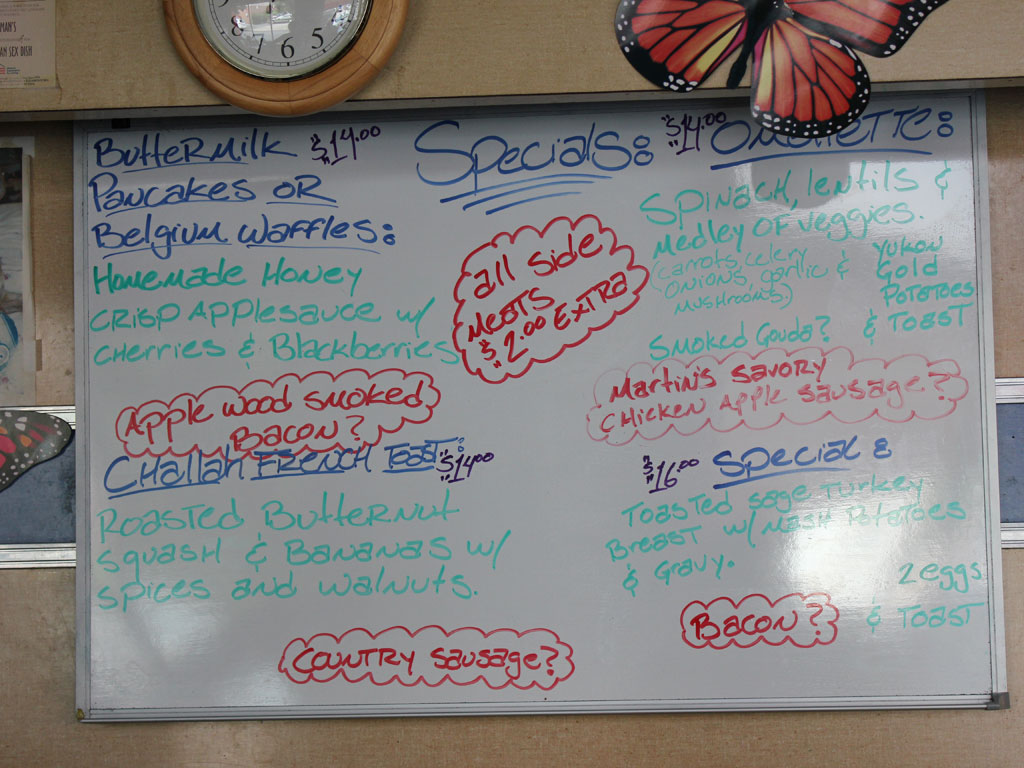 MAN'S
AN SEX DISH
8 7 6 5
Specials:
ButterMilk $14.00
Pancakes OR
Belgium Waffles:
Homemade Honey
CRISP APPlesauce w/
CHerries & Blackberries
Apple wood smoked
Bacon?
CHallaH FRENCH Toast: $14.00
Roasted Butternut
Squash & Bananas w/
spices and walnuts.
Country sausage?
all side
Meats
$2.00 Extra
$14.00 OMellETTE:
Spinach, lentils &
Medley of veggies.
(carrots, celery
Onions, garlic &
Mushrooms.)
Yukon
Gold
Potatoes
Smoked Gouda? & Toast
Martin's savory
Chicken Apple Sausage?
$16.00 Special:
Toasted sage Turkey
Breast w/ Mash Potatoes
& Gravy.
2 eggs
Bacon? & Toast